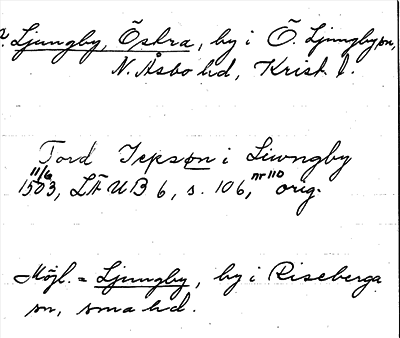 ?. Ljungby, Östra, by i Ö. Ljungby sn,
N. Åsbo hd, Krist. l.
Tord Jepson i Liwngby
11/6
1503, LÄUB 6, s. 106, nr 110 orig.
Möjl. = Ljungby, by i Riseberga
sn, sma hd.